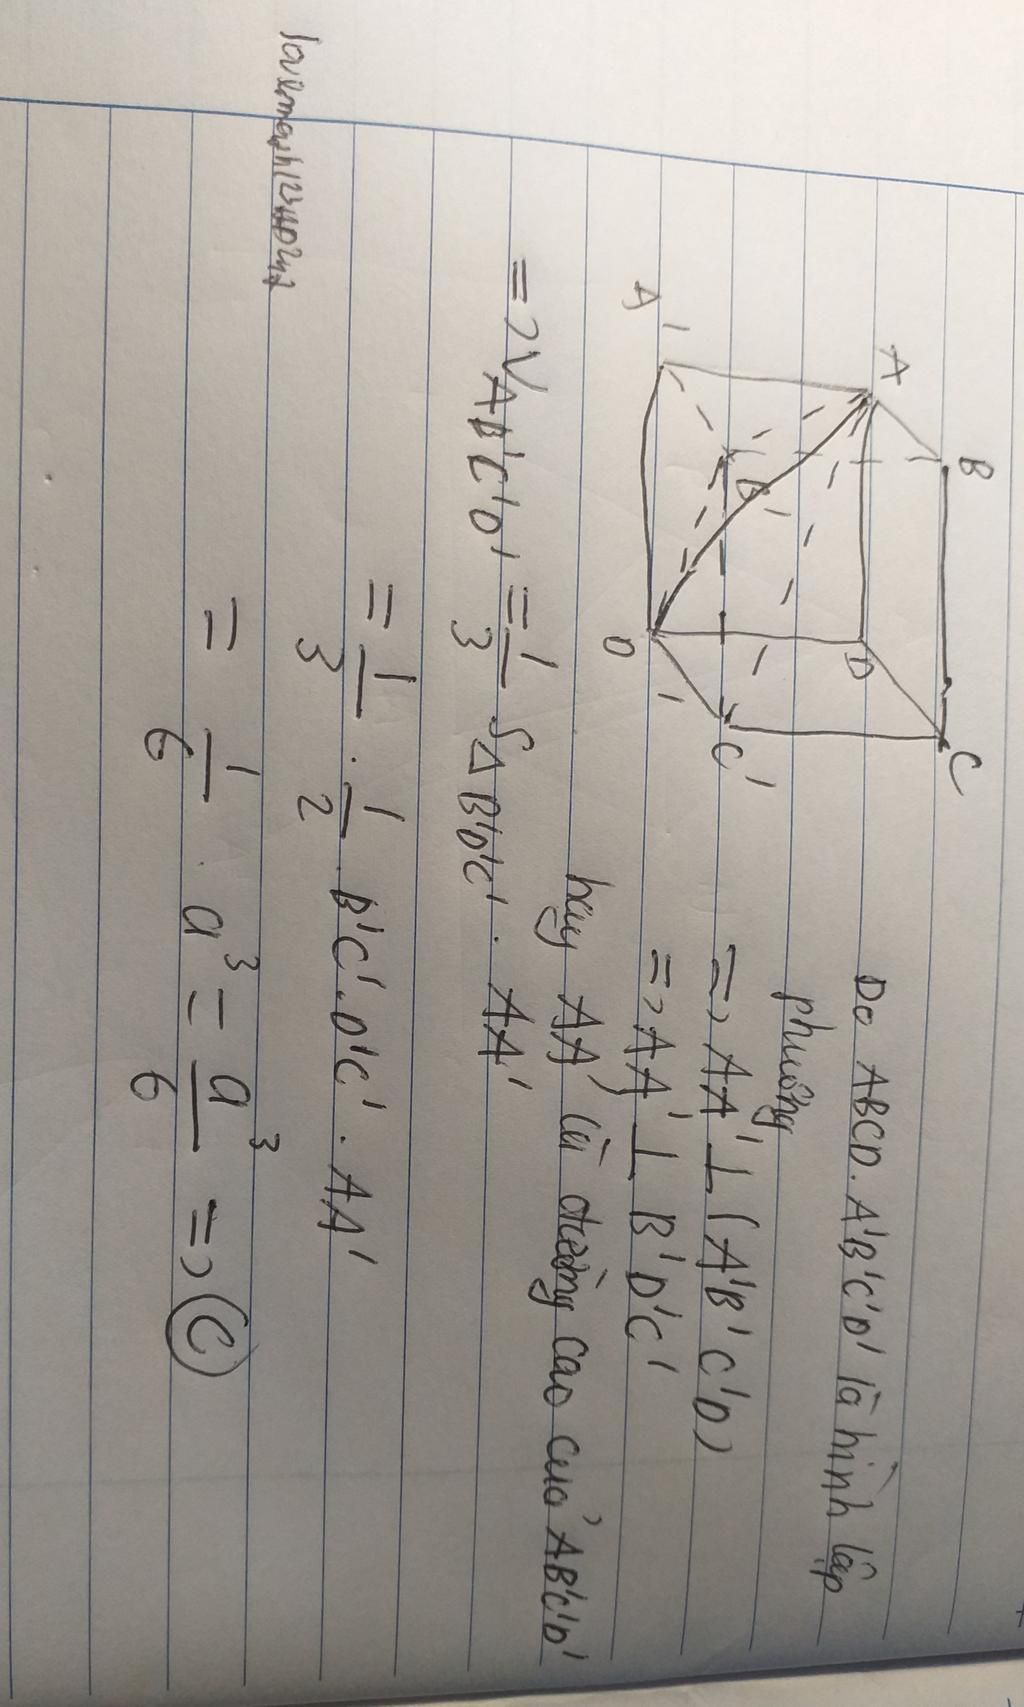 B
C
A
D
A'
B'
C'
D'
Do ABCD.A'B'C'D' là hình lập
phương
=> AA' ⊥ (A'B'C'D)
=> AA' ⊥ B'D'C'
hay AA' là đường cao của AB'C'D'
=> V AB'C'D' = 1/3 S Δ B'D'C' . AA'
= 1/3 . 1/2 . B'C'. D'C' . AA'
= 1/6 . a³ = a³/6 => C